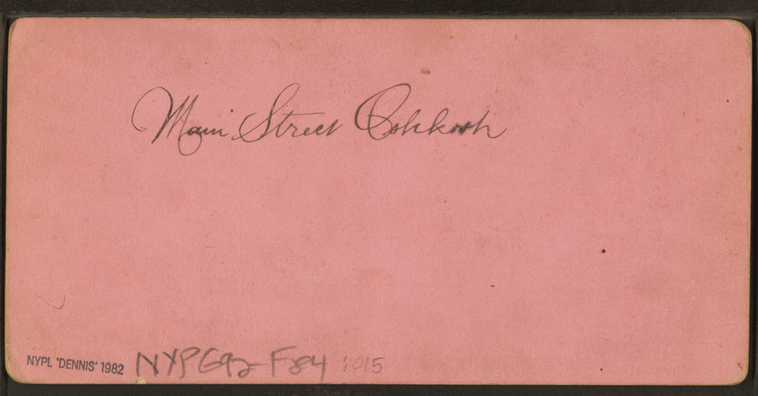 Main Street Oshkosh
NYPL 'DENNIS' 1982 NYPG92-F84 :015